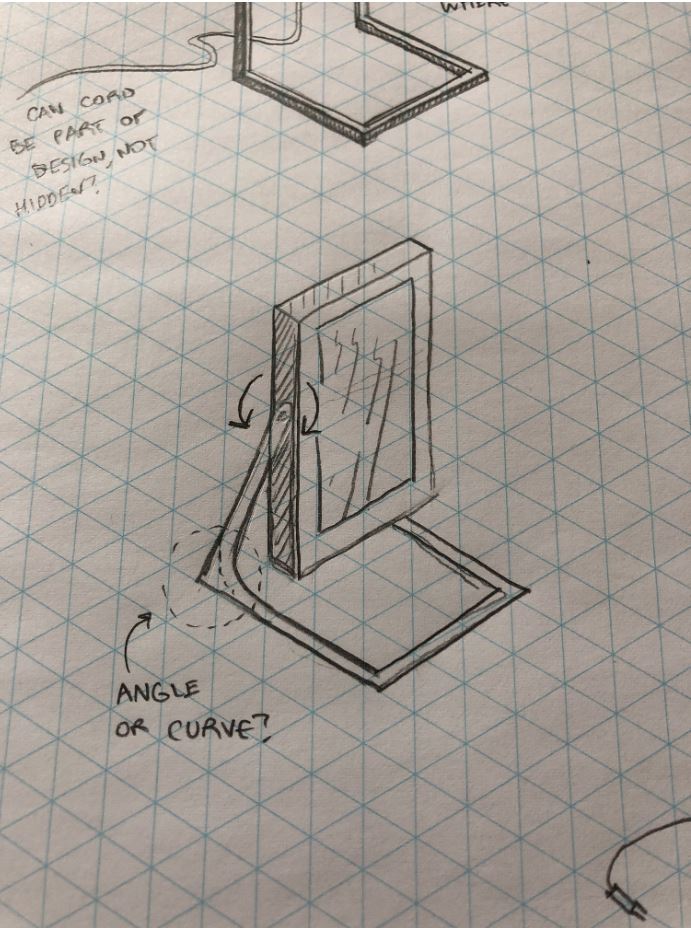 WHERE
CAN CORD
BE PART OF
DESIGN, NOT
HIDDEN?
ANGLE
OR CURVE?